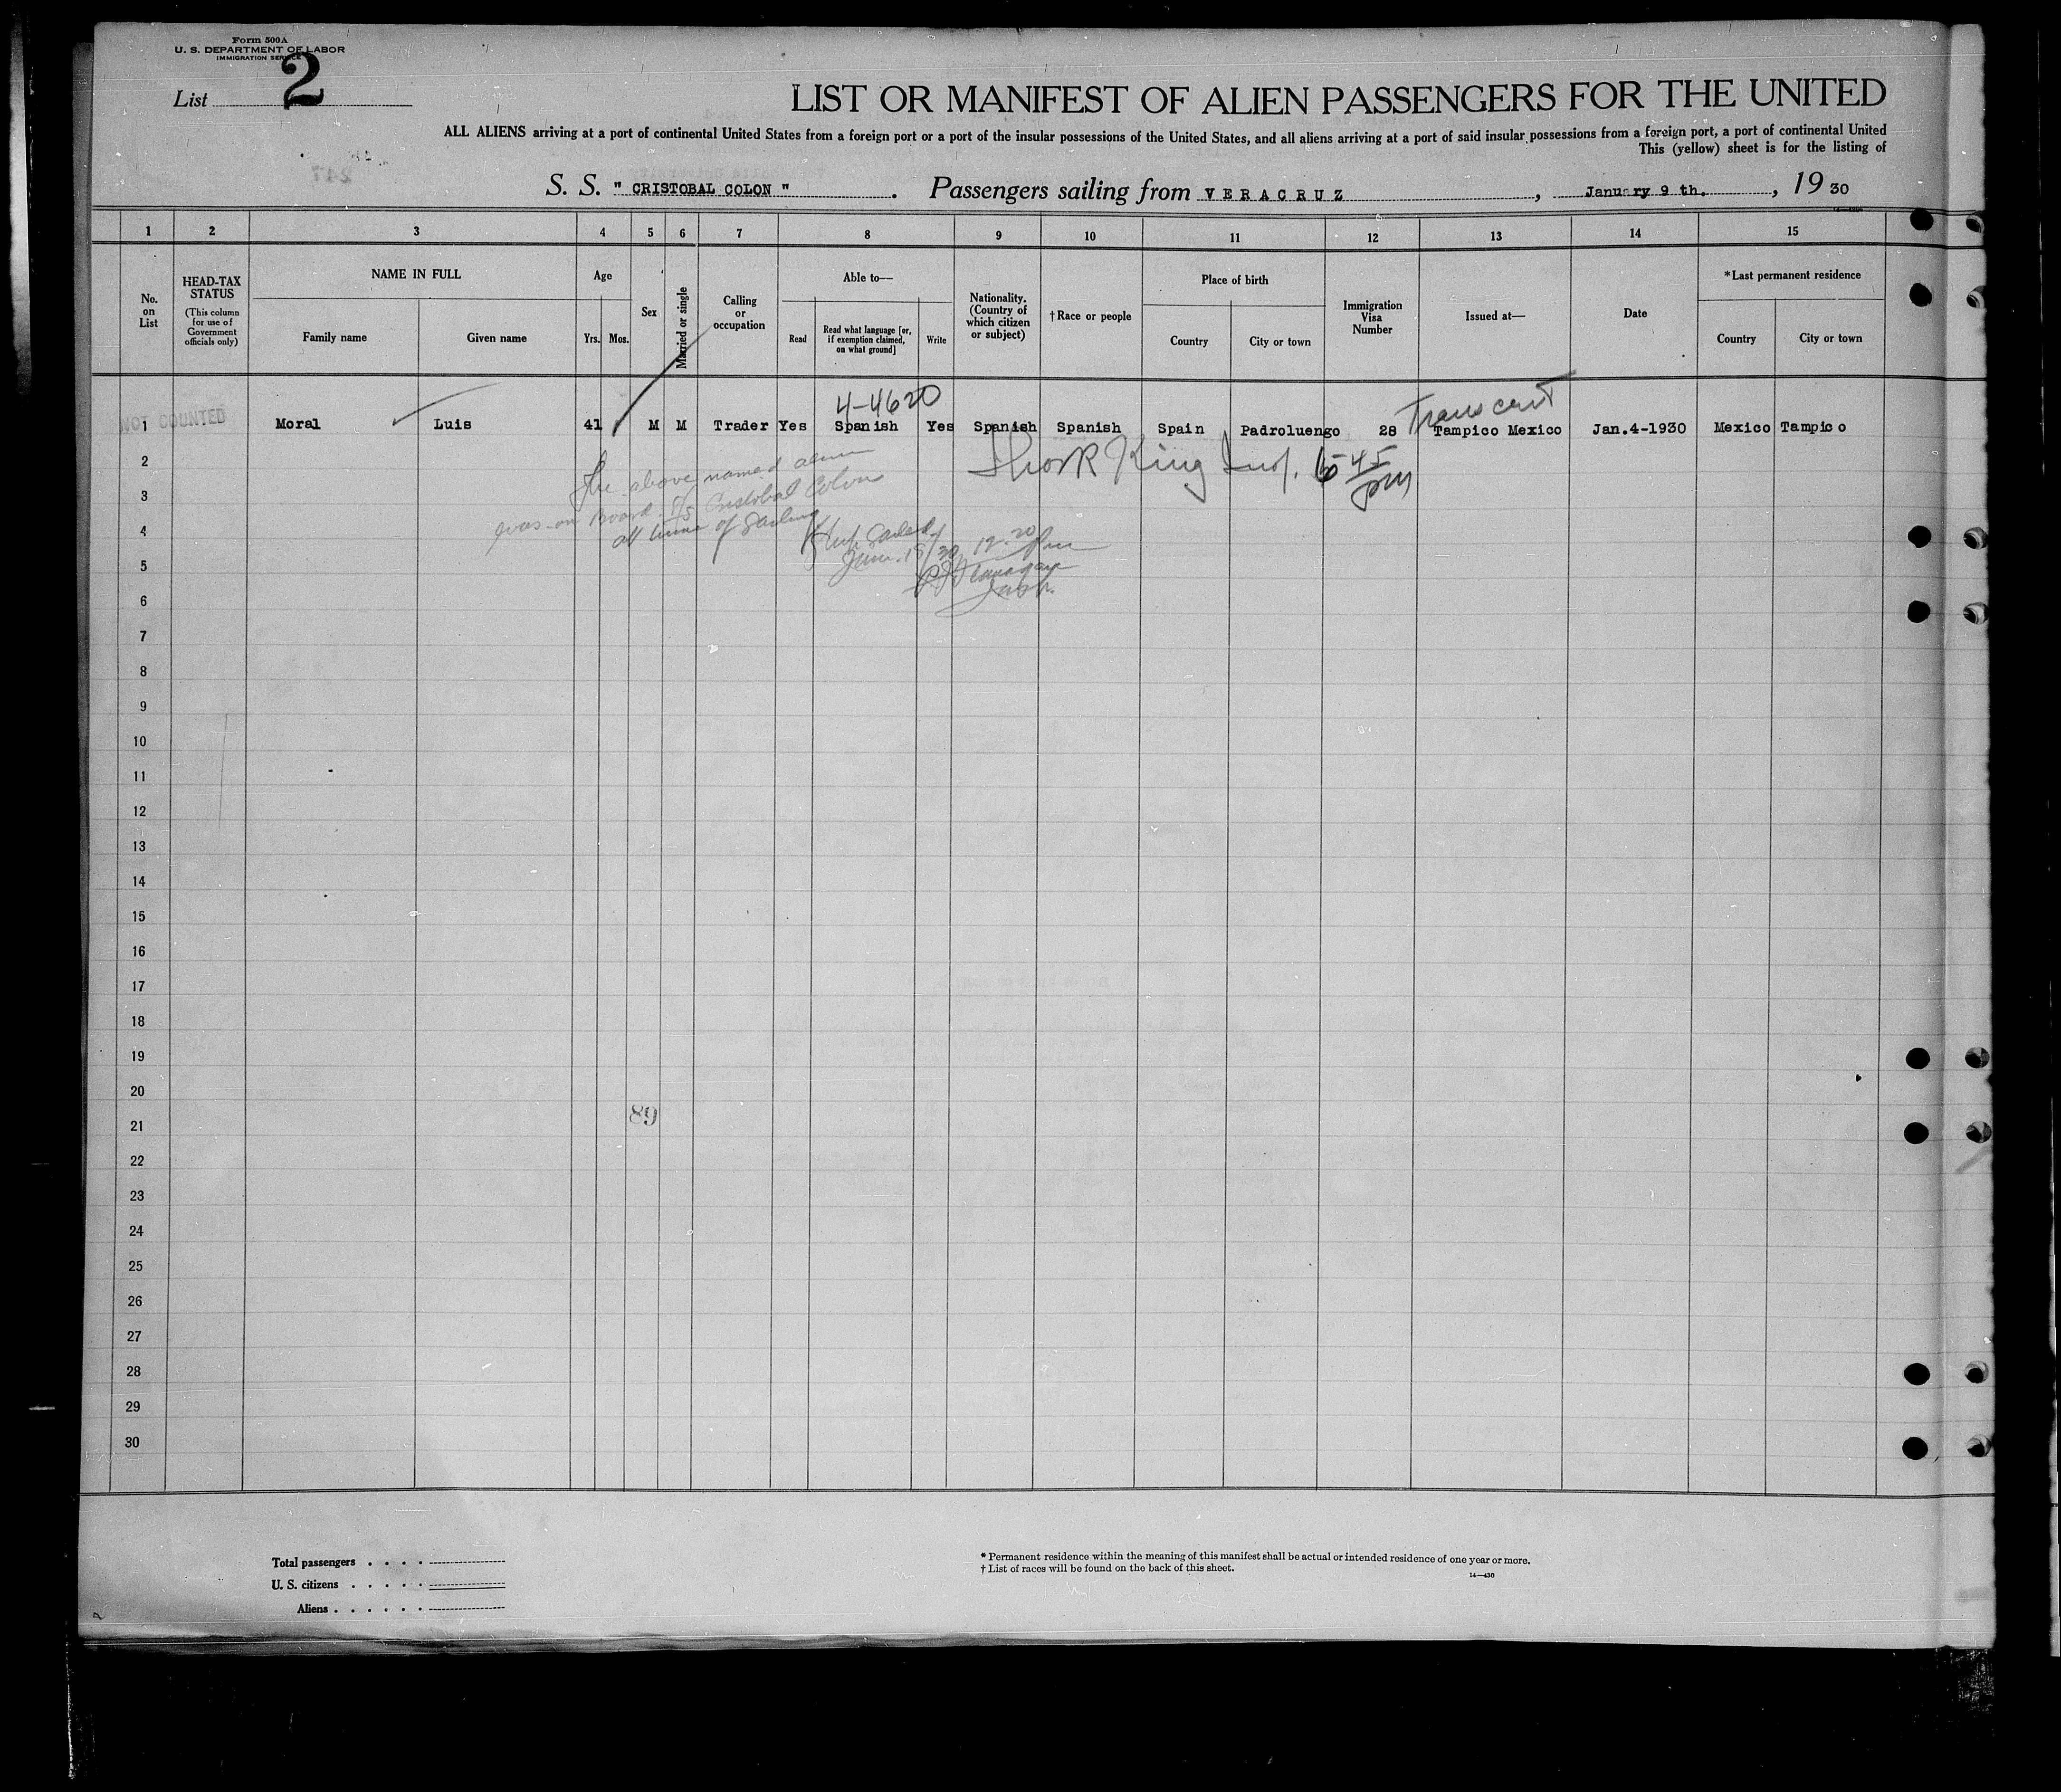 Form 500A
U. S. DEPARTMENT OF LABOR
IMMIGRATION SERVICE
List 2
LIST OR MANIFEST OF ALIEN PASSENGERS FOR THE UNITED
ALL ALIENS arriving at a port of continental United States from a foreign port or a port of the insular possessions of the United States, and all aliens arriving at a port of said insular possessions from a foreign port, a port of continental United
This (yellow) sheet is for the listing of
247
S. S. " CRISTOBAL COLON " . Passengers sailing from VERACRUZ , January 9 th. , 19 30
1 2 3 4 5 6 7 8 9 10 11 12 13 14 15
No. on List
HEAD-TAX STATUS
(This column for use of Government officials only)
NAME IN FULL
Family name Given name
Age
Yrs. Mos.
Sex
Married or single
Calling or occupation
Able to—
Read
Read what language [or, if exemption claimed, on what ground]
Write
Nationality. (Country of which citizen or subject)
†Race or people
Place of birth
Country City or town
Immigration Visa Number
Issued at—
Date
*Last permanent residence
Country City or town
4-4620
NOT COUNTED
1 Moral Luis 41 M M Trader Yes Spanish Yes Spanish Spanish Spain Padroluengo 28 Tampico Mexico Jan.4-1930 Mexico Tampico
The above named alien
was on Board S/S Cristobal Colon
at time of Sailing
King 45
pm
Sailed
12.20
pm
2
3
4
5
6
7
8
9
10
11
12
13
14
15
16
17
18
19
20
89
21
22
23
24
25
26
27
28
29
30
Total passengers . . . .
U. S. citizens . . . . .
Aliens . . . . . .
* Permanent residence within the meaning of this manifest shall be actual or intended residence of one year or more.
† List of races will be found on the back of this sheet.
14—430